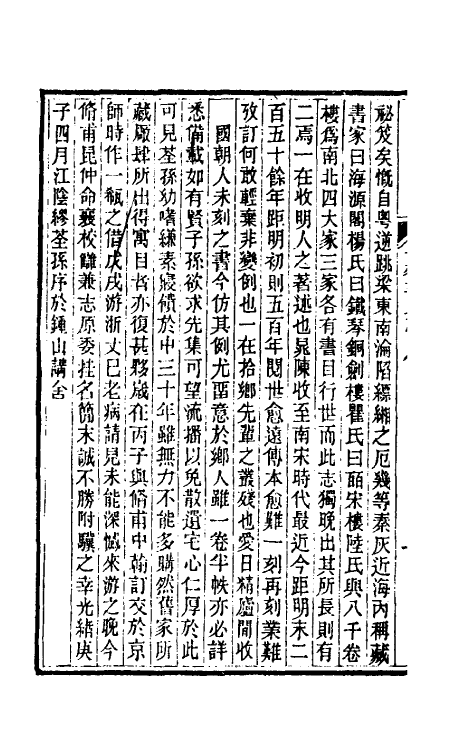 祕笈矣慨自粵逆跳梁東南淪陷縹緗之厄幾等秦灰近海內稱藏
書家曰海源閣楊氏曰鐵琴銅劍樓瞿氏曰皕宋樓陸氏與八千卷
樓爲南北四大家三家各有書目行世而此志獨晚出其所長則有
二焉一在收明人之著述也晁陳收至南宋時代最近今距明末二
百五十餘年距明初則五百年閱世愈遠傳本愈難一刻再刻業難
攷訂何敢輕棄非變例也一在拾鄉先輩之叢殘也愛日精廬間收
國朝人未刻之書今仿其例尤畱意於鄉人雖一卷半帙亦必詳
悉備載如有賢子孫欲求先集可望流播以免散遺宅心仁厚於此
可見荃孫幼嗜縑素寢饋於中三十年雖無力不能多購然舊家所
藏厰肆所出得寓目者亦復甚夥歲在丙子與脩甫中翰訂交於京
師時作一瓻之借戊戌游浙丈已老病請見未能深憾來游之晚今
脩甫昆仲命襄校讎兼志原委挂名簡末誠不勝附驥之幸光緒庚
子四月江陰繆荃孫序於鍾山講舍